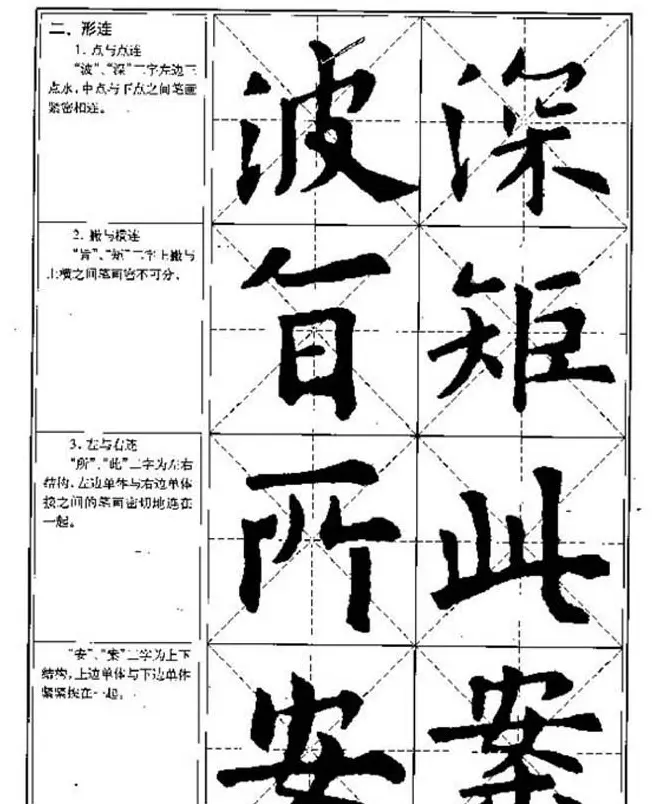 二、形连
1. 点与点连
“波”、“深”二字左边三
点水，中点与下点之间笔画
紧密相连。
波 深
2. 撇与横连
“旨”、“矩”二字上撇与
上横之间笔画密不可分。
旨 矩
3. 左与右连
“所”、“此”二字为左右
结构，左边单体与右边单体
按之间的笔画密切地连在
一起。
所 此
“安”、“案”二字为上下
结构，上边单体与下边单体
紧紧挨在一起。
安 案